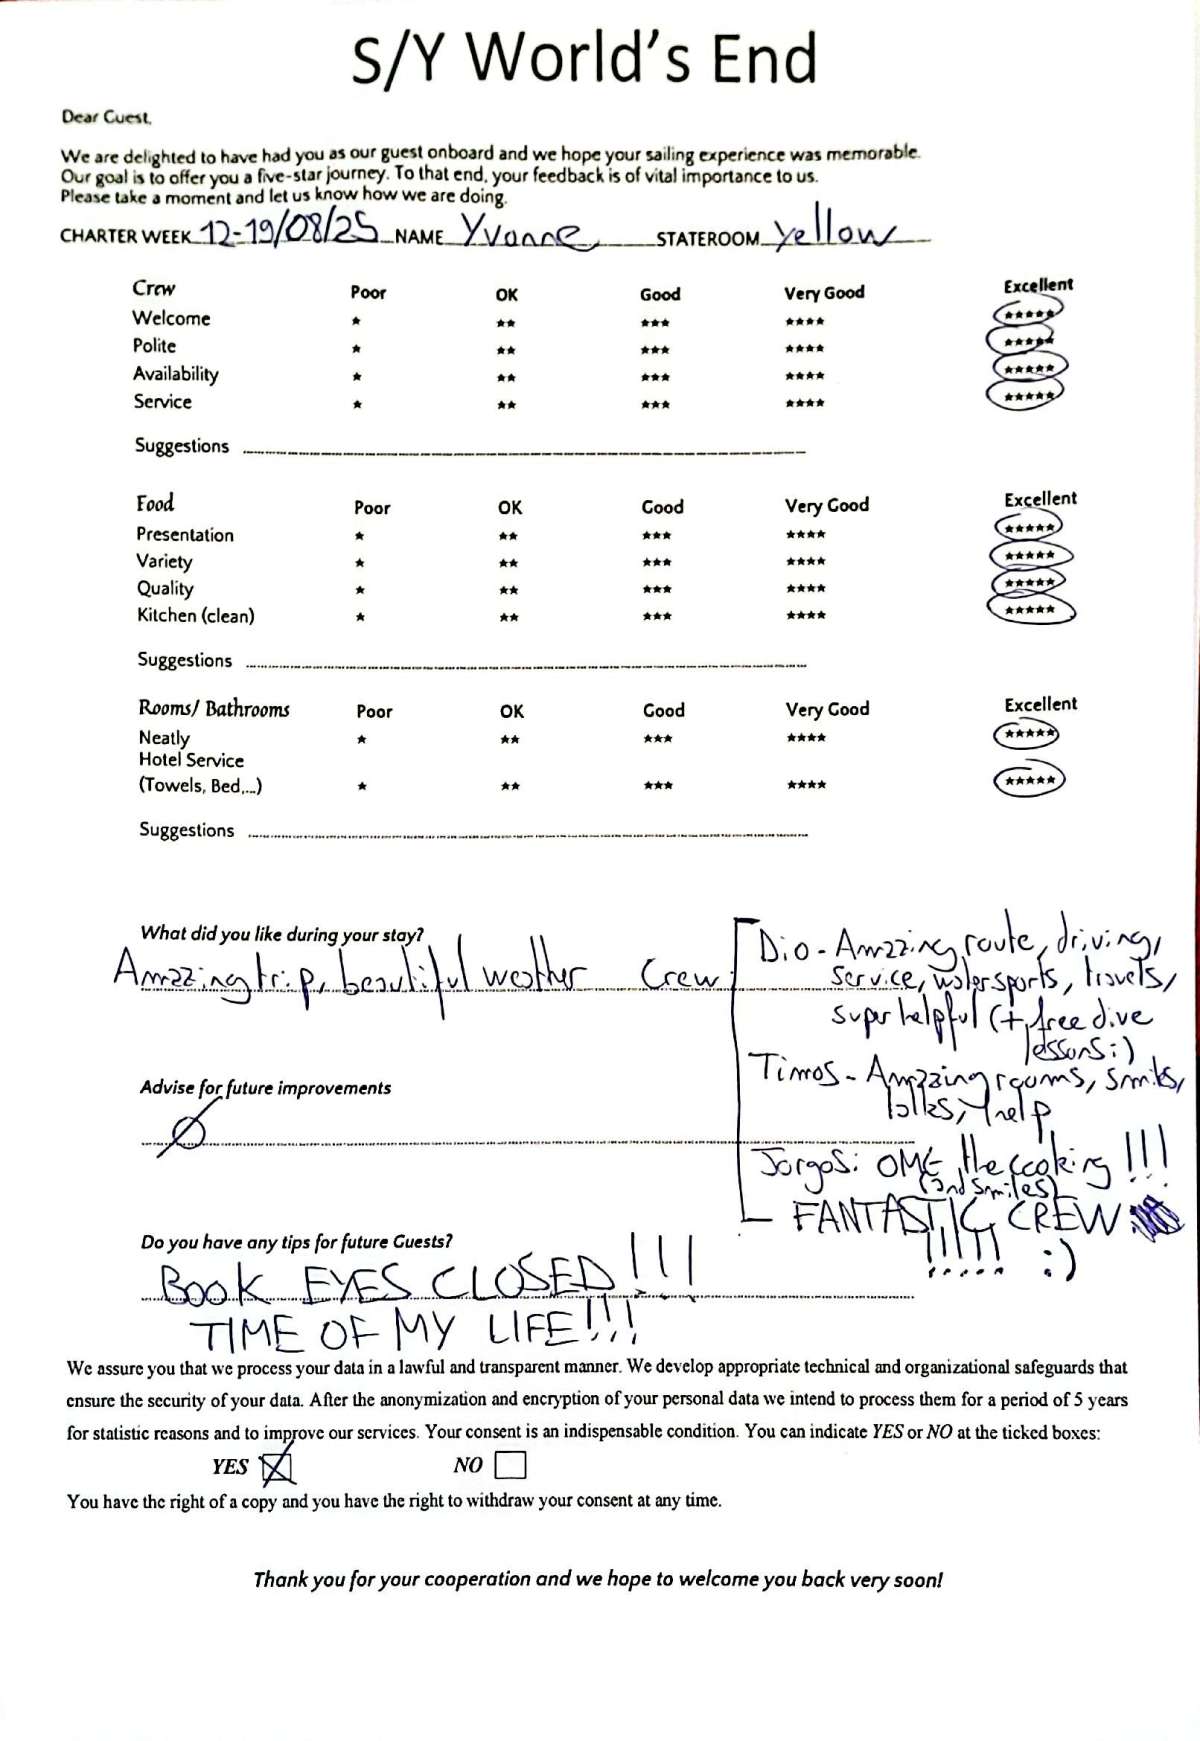 S/Y World's End
Dear Guest,
We are delighted to have had you as our guest onboard and we hope your sailing experience was memorable.
Our goal is to offer you a five-star journey. To that end, your feedback is of vital importance to us.
Please take a moment and let us know how we are doing.
CHARTER WEEK 12-19/08/25 NAME Yvonne STATEROOM yellow
Crew Poor OK Good Very Good Excellent
Welcome ★ ★★ ★★★ ★★★★ ★★★★★
Polite ★ ★★ ★★★ ★★★★ ★★★★★
Availability ★ ★★ ★★★ ★★★★ ★★★★★
Service ★ ★★ ★★★ ★★★★ ★★★★★
Suggestions
Food Poor OK Good Very Good Excellent
Presentation ★ ★★ ★★★ ★★★★ ★★★★★
Variety ★ ★★ ★★★ ★★★★ ★★★★★
Quality ★ ★★ ★★★ ★★★★ ★★★★★
Kitchen (clean) ★ ★★ ★★★ ★★★★ ★★★★★
Suggestions
Rooms/ Bathrooms Poor OK Good Very Good Excellent
Neatly ★ ★★ ★★★ ★★★★ ★★★★★
Hotel Service
(Towels, Bed,...) ★ ★★ ★★★ ★★★★ ★★★★★
Suggestions
What did you like during your stay?
Amazzing trip, beautiful weather Crew
Dio - Amazzing route, driving,
service, watersports, travels,
super helpful (+ free dive
lessons :)
Timos - Amazzing rooms, smiles,
talks, help
Jorgos: OMG the cooking!!!
(and smiles)
FANTASTIC CREW
!!!!! :)
Advise for future improvements
Ø
Do you have any tips for future Guests?
BOOK EYES CLOSED!!!
TIME OF MY LIFE!!!
We assure you that we process your data in a lawful and transparent manner. We develop appropriate technical and organizational safeguards that
ensure the security of your data. After the anonymization and encryption of your personal data we intend to process them for a period of 5 years
for statistic reasons and to improve our services. Your consent is an indispensable condition. You can indicate YES or NO at the ticked boxes:
YES ☒ NO ☐
You have the right of a copy and you have the right to withdraw your consent at any time.
Thank you for your cooperation and we hope to welcome you back very soon!